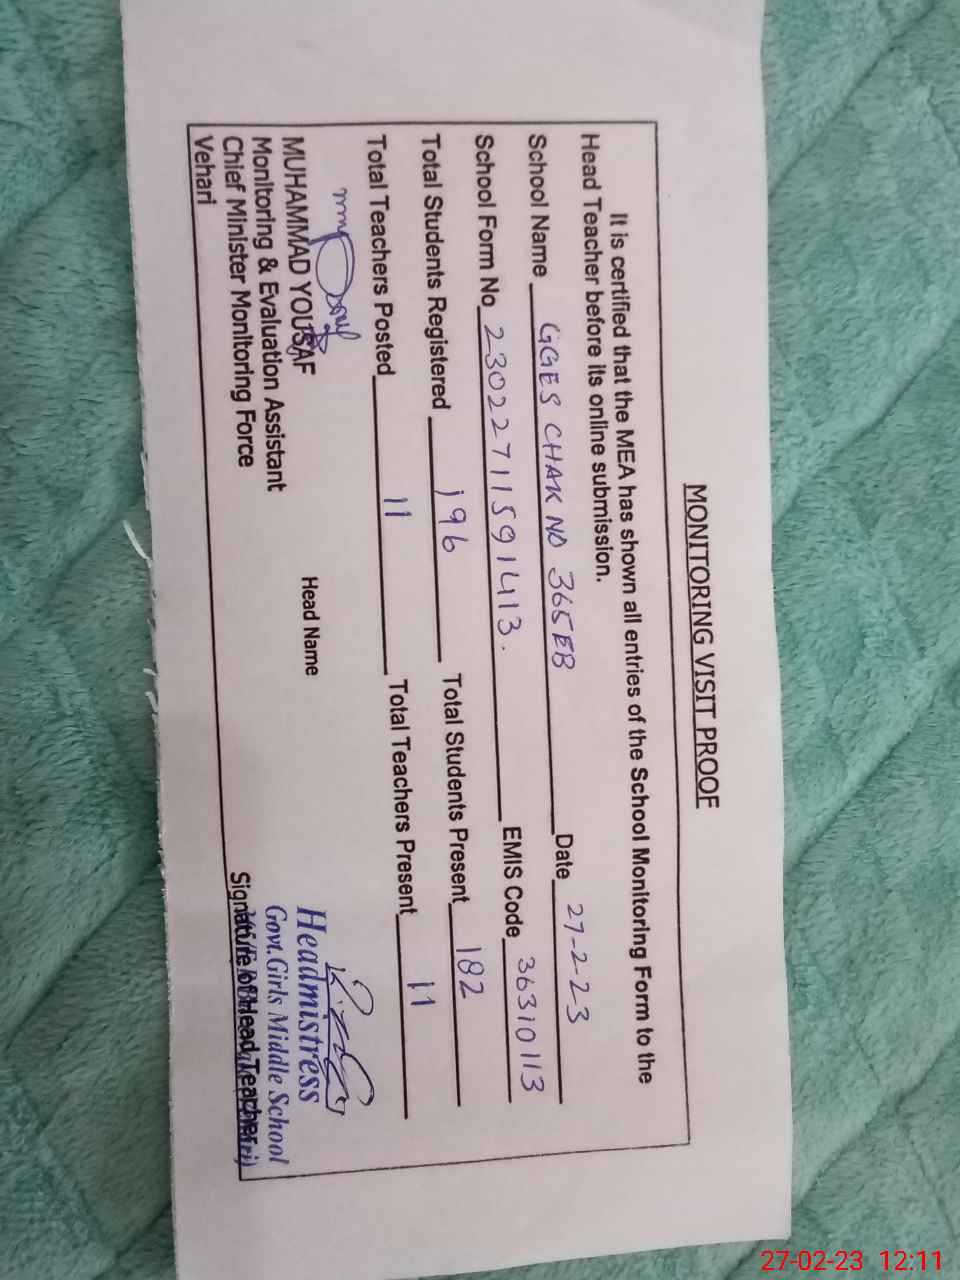 MONITORING VISIT PROOF
It is certified that the MEA has shown all entries of the School Monitoring Form to the
Head Teacher before its online submission.
School Name GGES CHAK NO 365EB Date 27-2-23
School Form No 23022711591413. EMIS Code 36310113
Total Students Registered 196 Total Students Present 182
Total Teachers Posted 11 Total Teachers Present 11
MUHAMMAD YOUSAF
Monitoring & Evaluation Assistant
Chief Minister Monitoring Force
Vehari
Head Name
Headmistress
Govt.Girls Middle School
Signature of Head Teacher
27-02-23 12:11